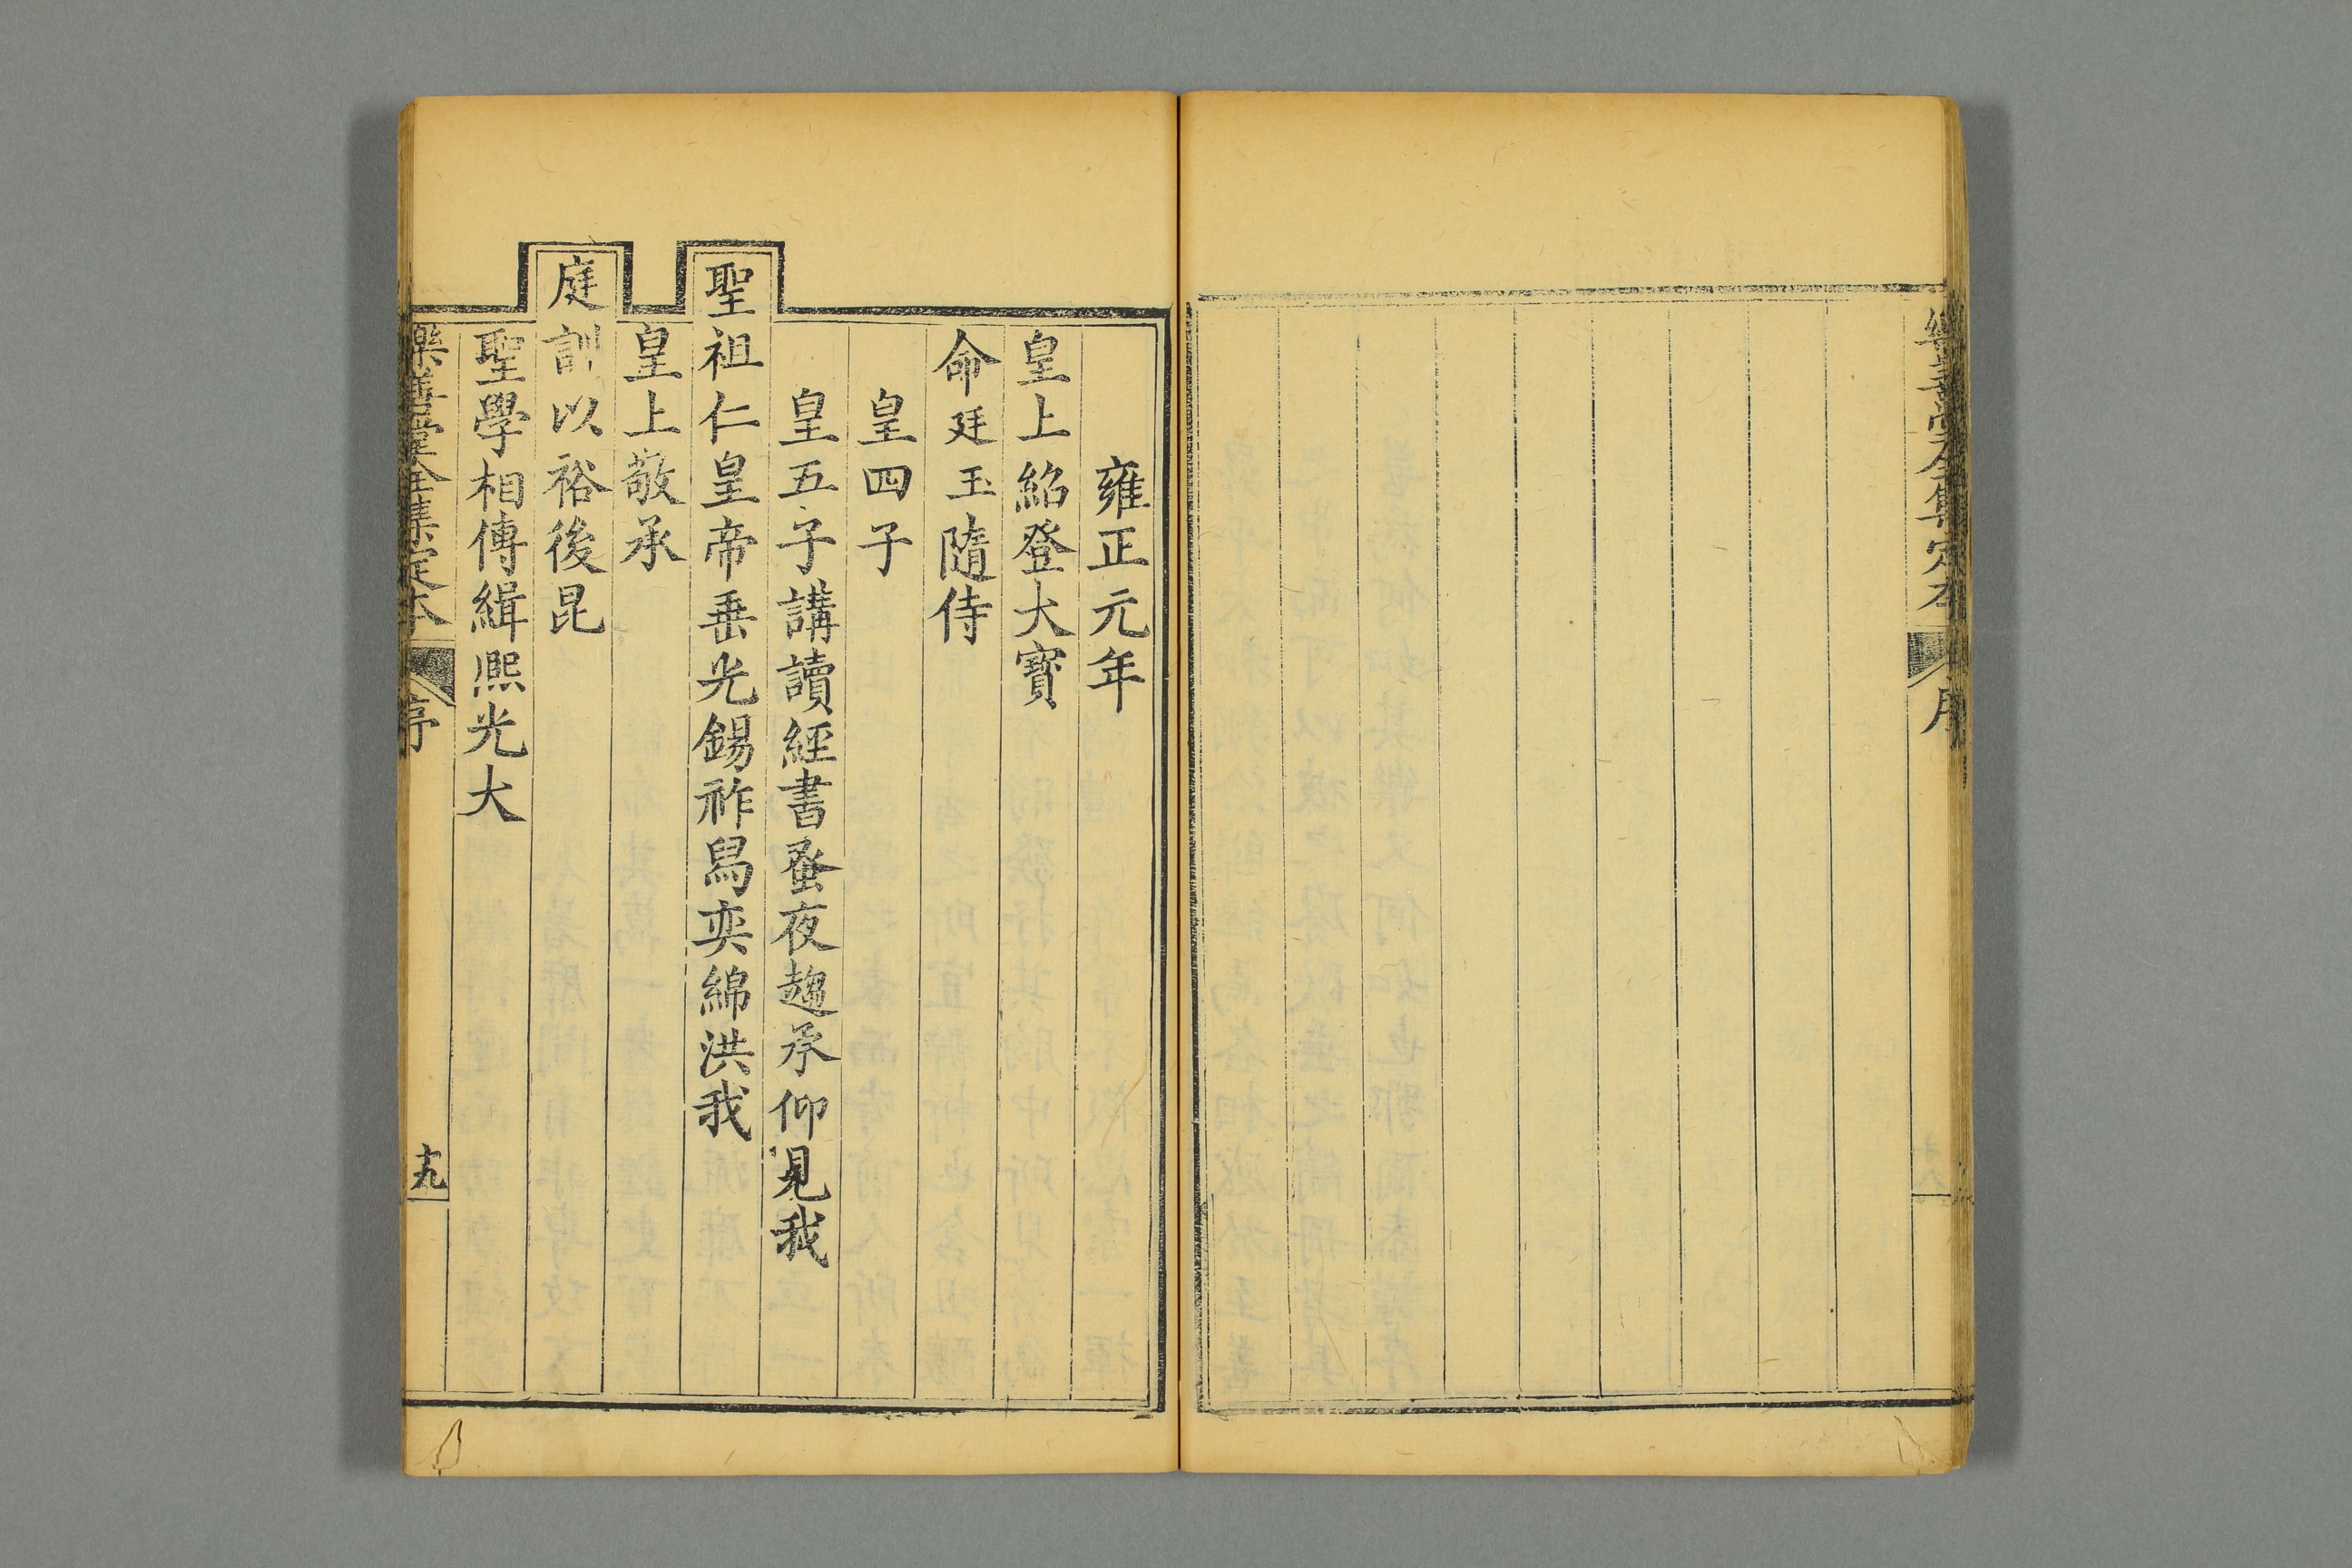 樂善堂全集定本
序
雍正元年
皇上紹登大寶
命廷玉隨侍
皇四子
皇五子講讀經書蚤夜趨承仰見我
聖祖仁皇帝垂光錫祚舃奕綿洪我
皇上敬承
庭訓以裕後昆
聖學相傳緝熙光大
樂善堂全集定本
序
十九